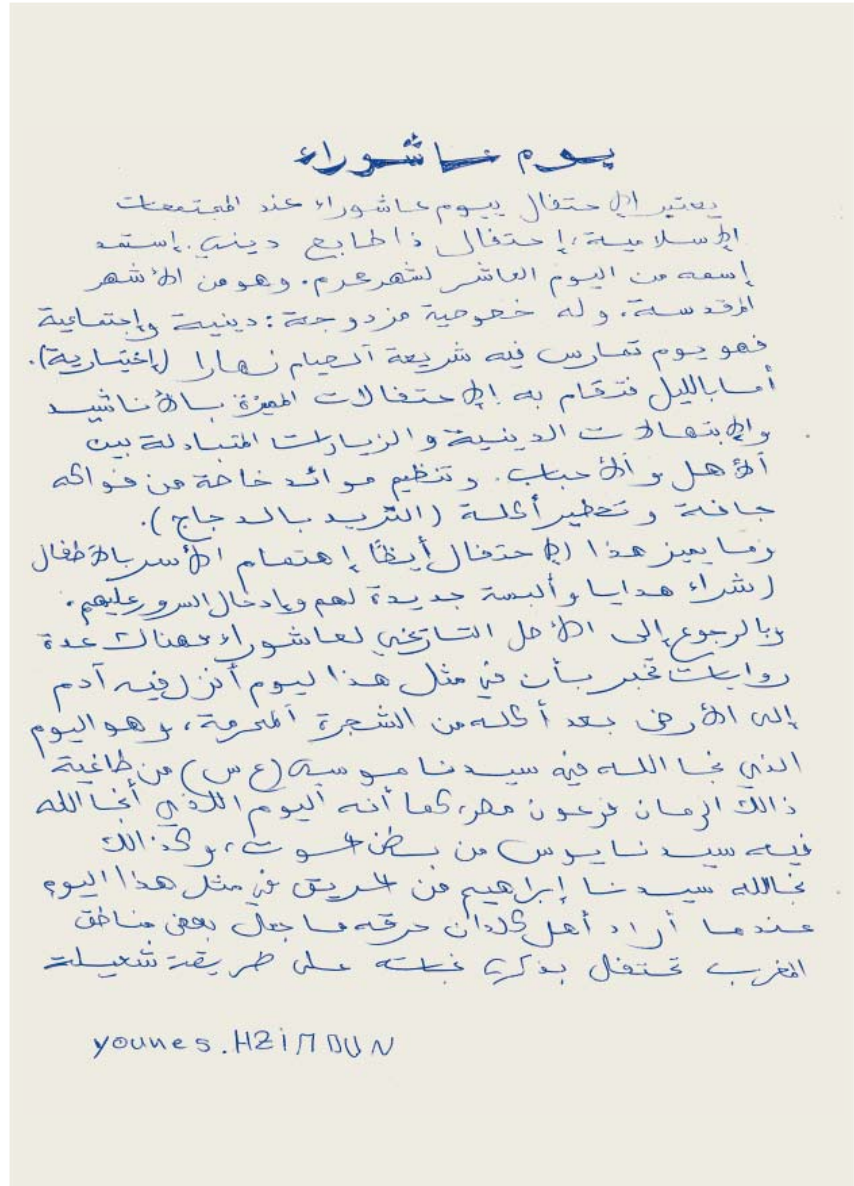 يوم عاشوراء
يعتبر الإحتفال بيوم عاشوراء عند المجتمعات
الإسلامية، إحتفال ذا طابع ديني. إستمد
إسمه من اليوم العاشر لشهر محرم. وهو من الأشهر
المقدسة. وله خصوصية مزدوجة: دينية وإجتماعية
فهو يوم تمارس فيه شريعة الصيام نهارا (إختيارية).
أما بالليل فتقام به الإحتفالات المميزة بالأناشيد
والإبتهالات الدينية والزيارات المتبادلة بين
الأهل والأحباب. وتنظيم موائد خاصة من فواكه
جافة وتحظير أكلة (الثريد بالدجاج).
وما يميز هذا الإحتفال أيظا إهتمام الأسر بالأطفال
لشراء هدايا وألبسة جديدة لهم وإدخال السرور عليهم.
وبالرجوع إلى الأصل التاريخي لعاشوراء فهناك عدة
روايات تخبر بأن في مثل هذا ليوم أنزل فيه آدم
إلى الأرض بعد أكله من الشجرة المحرمة، وهو اليوم
الذي نجا الله فيه سيدنا موسى (ع س) من طاغية
ذالك الزمان فرعون مصر، كما أنه اليوم اللذي أنجا الله
فيه سيدنا يوس من بطن الحوت، وكذالك
نجا الله سيدنا إبراهيم من الحريق في مثل هذا اليوم
عندما أراد أهل كلدان حرقه ما جعل بعض مناطق
المغرب تحتفل بذكرى نجاته على طريقة شعيلة
younes.HZiMOUN